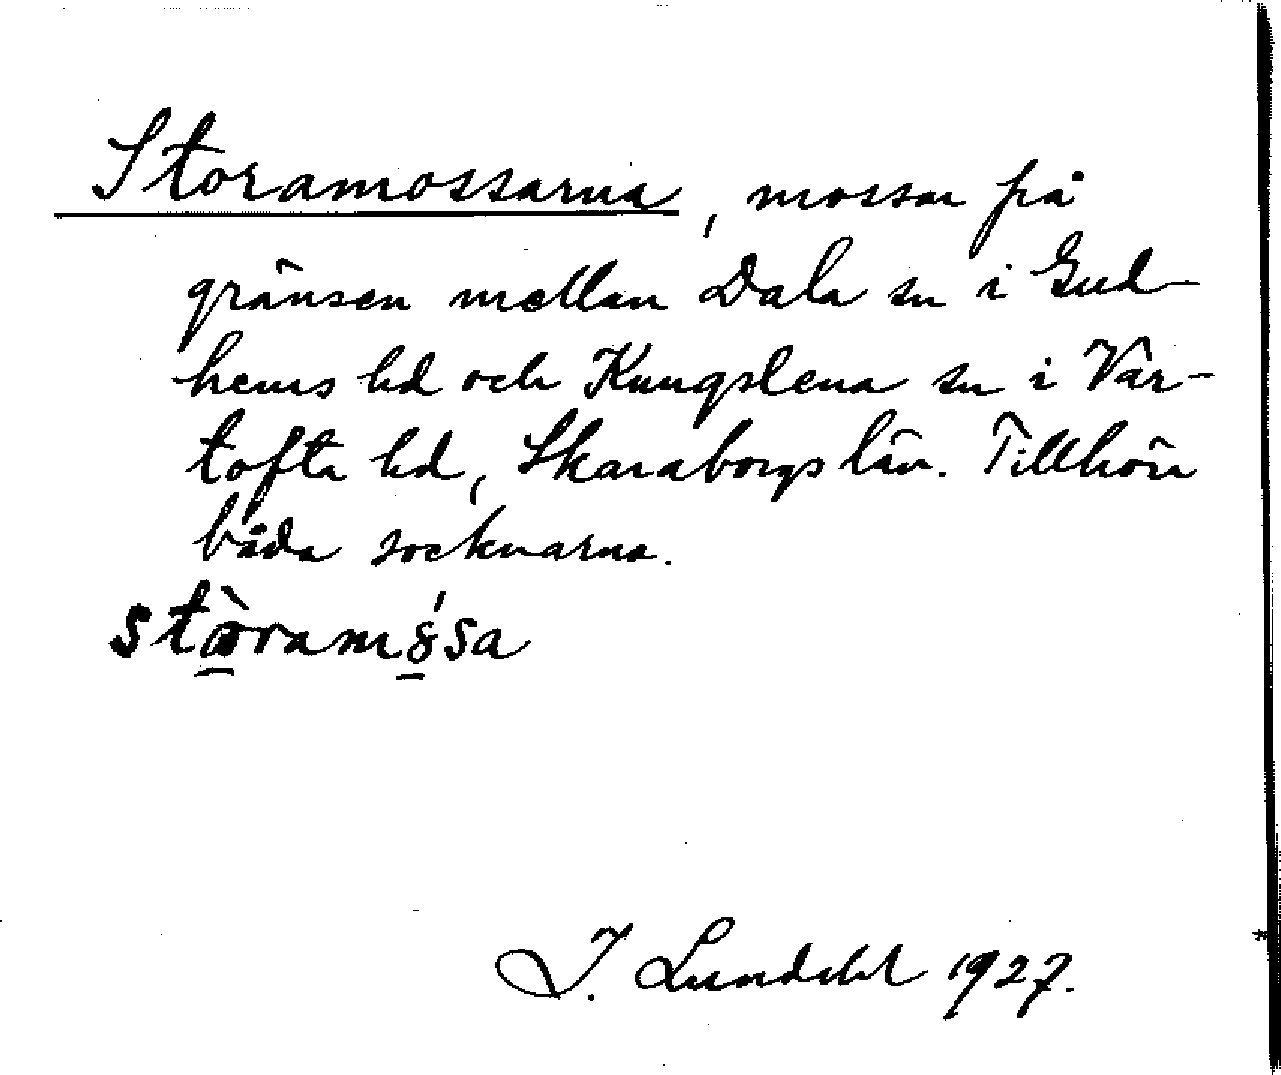 Storamossarna, mossar på
gränsen mellan Dala sn i Gud-
hems hd och Kungslena sn i Var-
tofta hd, Skaraborgs län. Tillhör
båda socknarna.
I. Lundahl 1927.